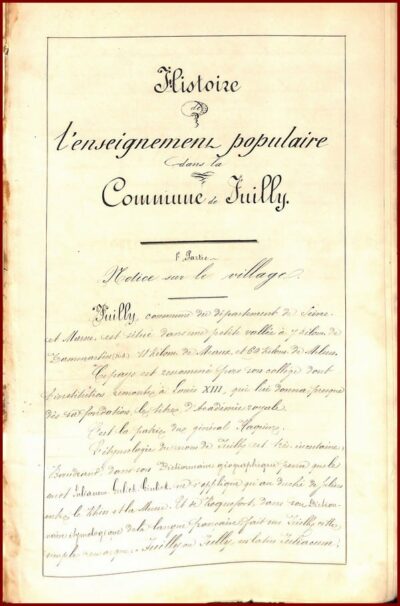 Histoire
de
l'enseignement populaire
dans la
Commune de Juilly.
1e Partie
Notice sur le village
Juilly, commune du département de Seine
et Marne est situé dans une petite vallée à 7 kilom. de
Dammartin 17 kilom. de Meaux, et 60 kilom. de Melun.
Ce pays est renommé par son collège dont
l'institution remonte à Louis XIII, qui lui donna, presque
dès sa fondation, le titre d'Académie royale.
C'est la patrie du général
L'étymologie du nom de Juilly est très incertaine;
dans son Dictionnaire géographique que le
mot ne s'applique qu'au duché de Juliers
entre le Rhin et la Meuse. Et de Roquefort, dans son Diction-
naire étymologique de la langue française fait sur Juilly cette
simple remarque: Juilly ou Jully, en latin Juliacum;